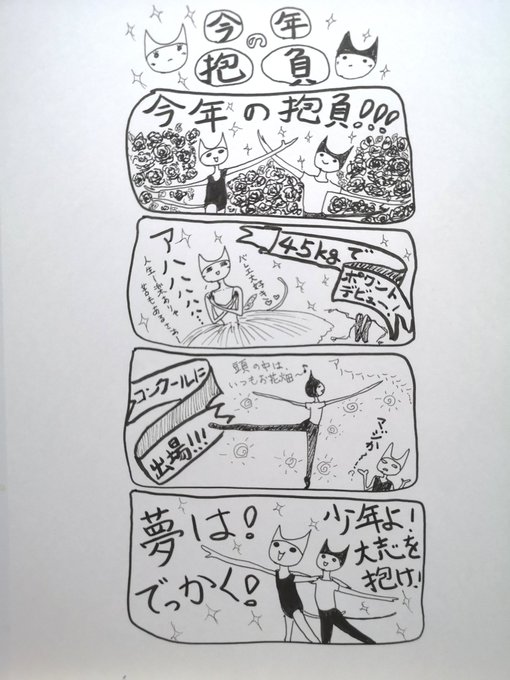 今年の抱負
今年の抱負!!!
45kgで
ポワント
デビュー!
バレエ大好き
アハハハハハ…
人生楽ありゃ
苦もあるさぁ
コンクールに
出場!!!
頭の中は、
いつもお花畑〜♪
アハ
マジか
夢は!
でっかく!
少年よ!
大志を
抱け!